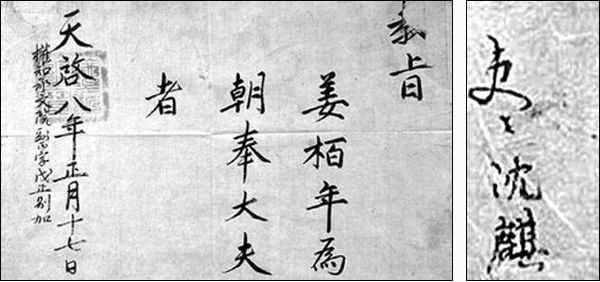 敎旨
姜栢年為
朝奉大夫
者
天啓八年正月十七日
權知承文院副正字別加
吏〻沈麒